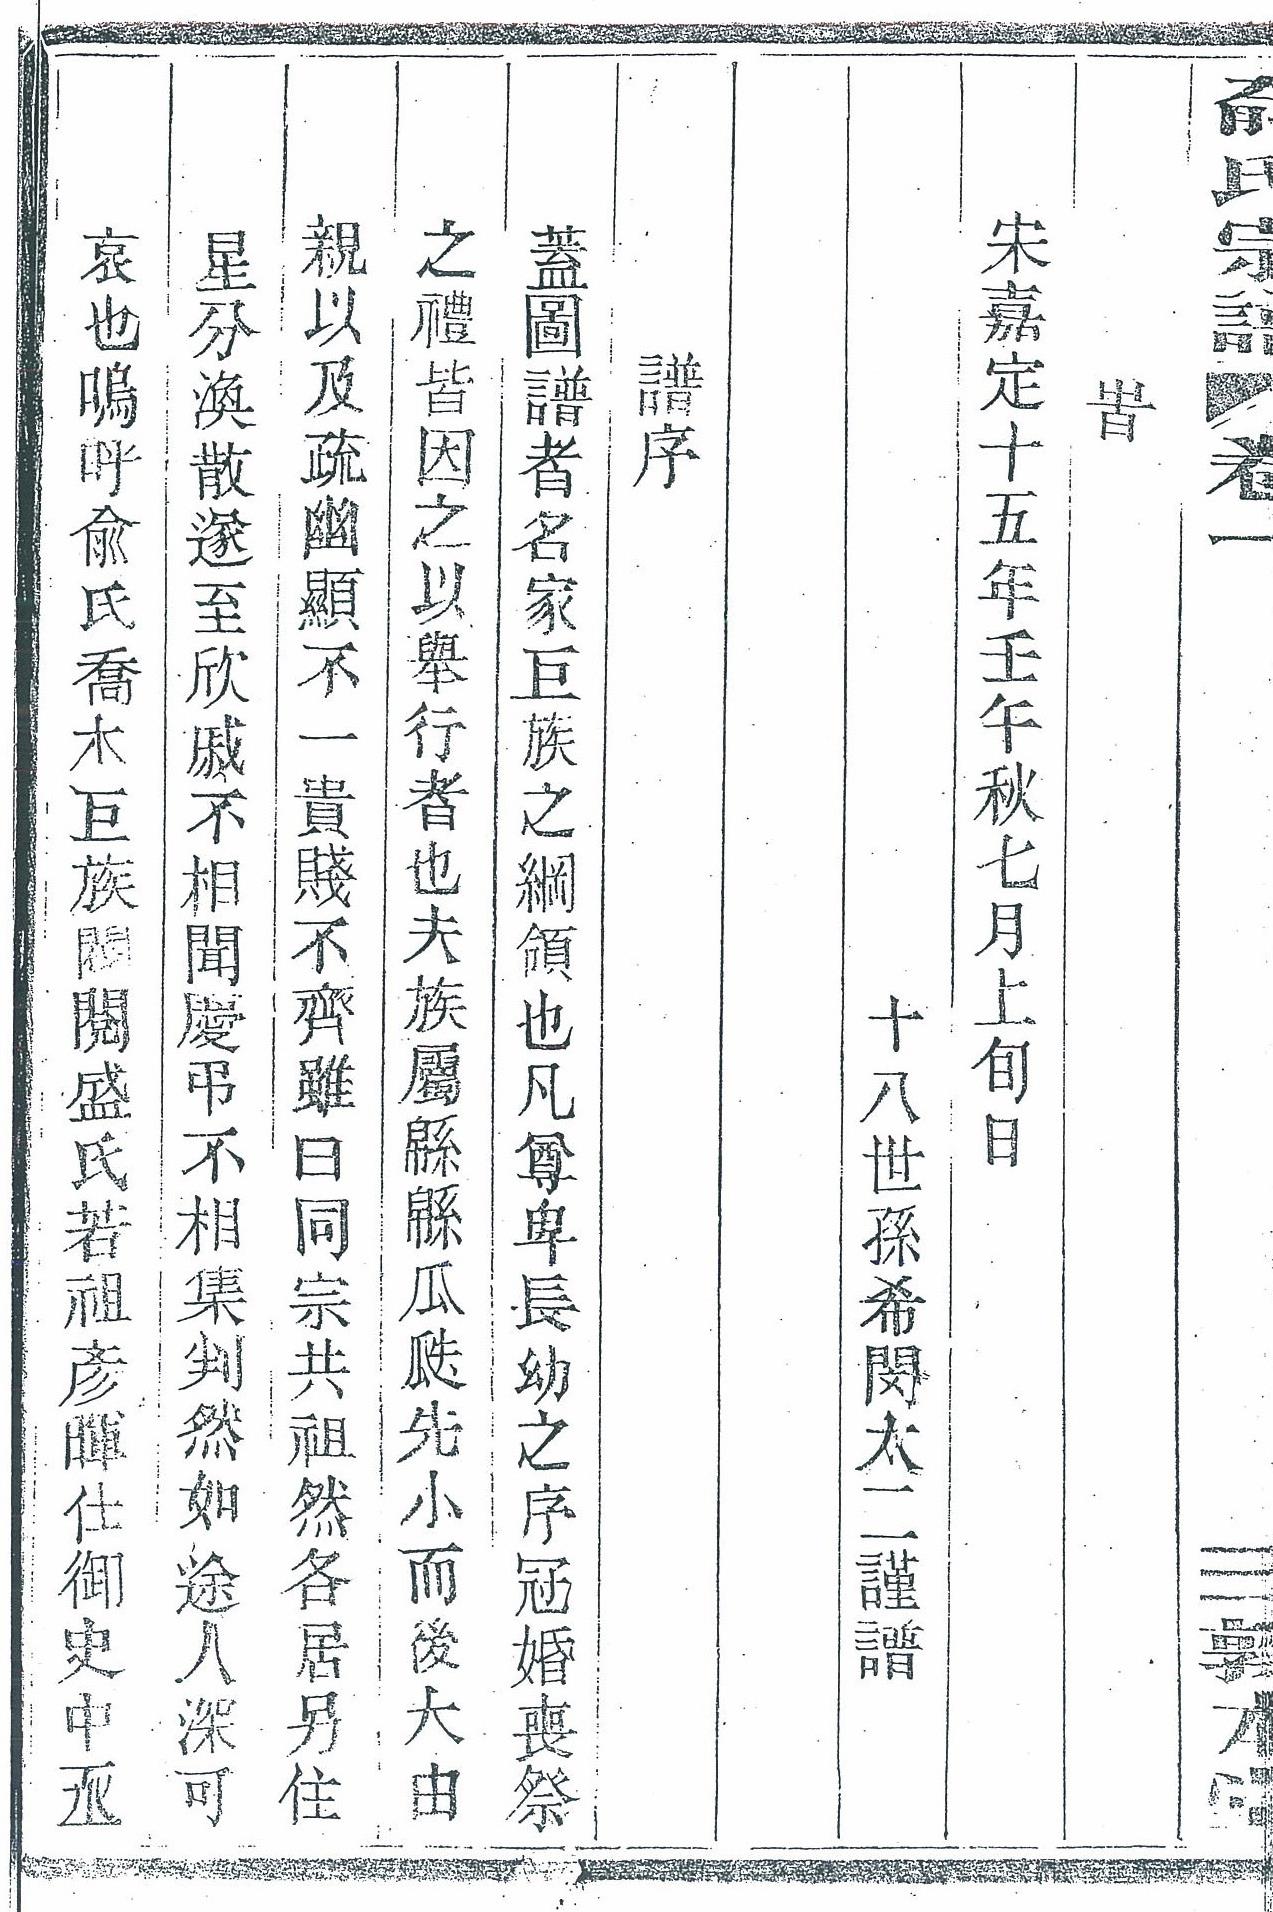 俞氏宗譜 卷一 三 敦本堂
昔
宋嘉定十五年壬午秋七月上旬日
十八世孫希閔太二謹譜
譜序
蓋圖譜者名家巨族之綱領也凡尊卑長幼之序冠婚喪祭
之禮皆因之以舉行者也夫族屬緜緜瓜瓞先小而後大由
親以及疏幽顯不一貴賤不齊雖曰同宗共祖然各居另住
星分渙散遂至欣戚不相聞慶弔不相集判然如途人深可
哀也嗚呼俞氏喬木巨族閥閱盛氏若祖彥暉仕御史中丞